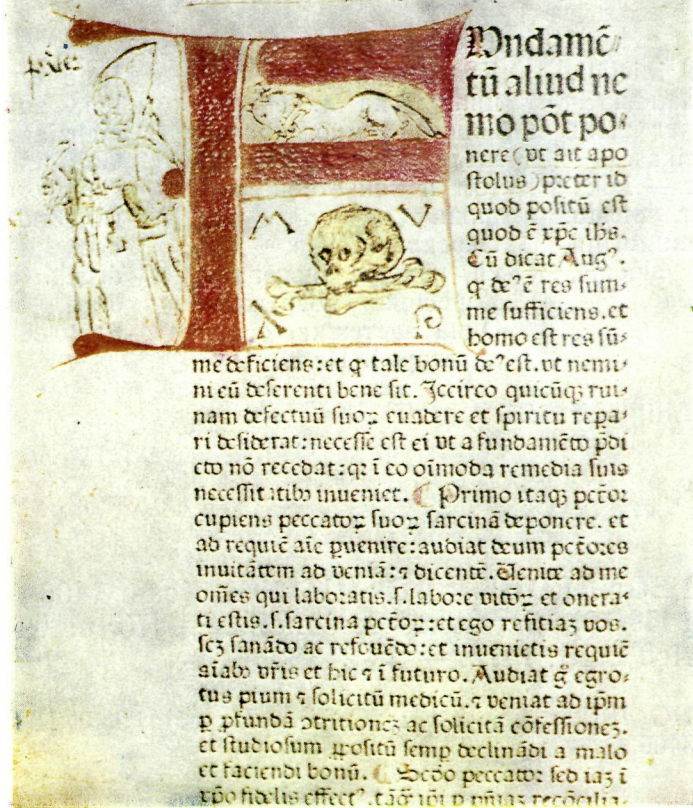 Undamē
tū aliud ne
mo pōt po⸗
nere (ut ait apo
stolus) preter id
quod positū est
quod ē xp̄c ih̄s.
Cū dicat Augꝰ.
ꝙ deꝰ ē res sum⸗
me sufficiens. et
homo est res sū⸗
M V
A S
me deficiens: et ꝙ tale bonū deꝰ est. ut nemi⸗
ni eū deserenti bene sit. Iccirco quicūqꝫ rui⸗
nam defectuū suoꝝ euadere et spiritu repa⸗
ri desiderat: necesse est ei ut a fundamēto p̄di
cto nō recedat: qꝛ ī eo oīmoda remedia suis
necessitatibꝰ inueniet. ¶ Primo itaqꝫ pctōr
cupiens peccatoꝝ suoꝝ sarcinā deponere. et
ad requiē aīe ꝑuenire: audiat deum pctōres
inuitātem ad ueniā: ⁊ dicentē. Uenite ad me
om̄es qui laboratis. s. labore uitioꝝ et onera⸗
ti estis. s. sarcina pctōꝝ: et ego reficiaꝫ uos.
scꝫ sanādo ac refouēdo: et inuenietis requiē
aīabꝰ ur̄is et hic ⁊ ī futuro. Audiat gͦ egro⸗
tus pium ⁊ solicitū medicū. ⁊ ueniat ad ip̄m
ꝑ ꝓfundā ꝯtritioneꝫ ac solicitā cōfessioneꝫ.
et studiosum ꝓpositū semꝑ declinādi a malo
et faciendi bonū. ¶ Scd̄o peccator sed iaꝫ ī
xp̄o fidelis effectꝰ. tāqꝫ ibi ꝑ pn̄iaꝫ recōcilia⸗